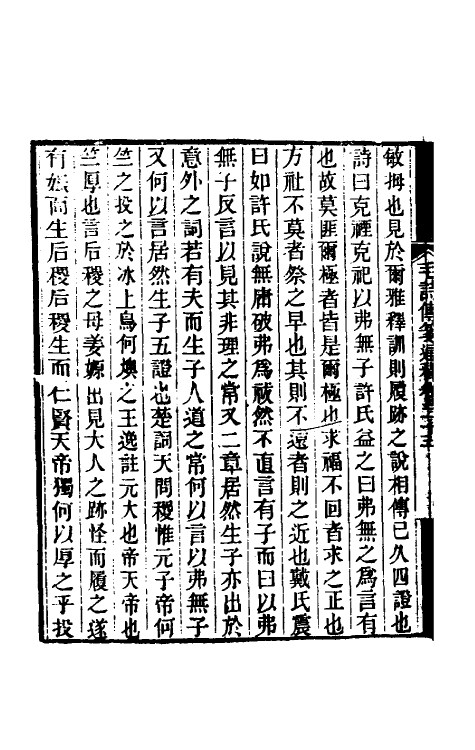 敏拇也見於爾雅釋訓則履跡之說相傳已久四證也
詩曰克禋克祀以弗無子許氏益之曰弗無之爲言有
也故莫匪爾極者皆是爾極也求福不回者求之正也
方社不莫者祭之早也其則不遠者則之近也戴氏震
曰如許氏說無庸破弗爲祓然不直言有子而曰以弗
無子反言以見其非理之常又二章居然生子亦出於
意外之詞若有夫而生子人道之常何以言以弗無子
又何以言居然生子五證也楚詞天問稷惟元子帝何
竺之投之於冰上鳥何燠之王逸註元大也帝天帝也
竺厚也言后稷之母姜嫄出見大人之跡怪而履之遂
有娠而生后稷后稷生而仁賢天帝獨何以厚之乎投
毛詩傳箋通釋卷二十五